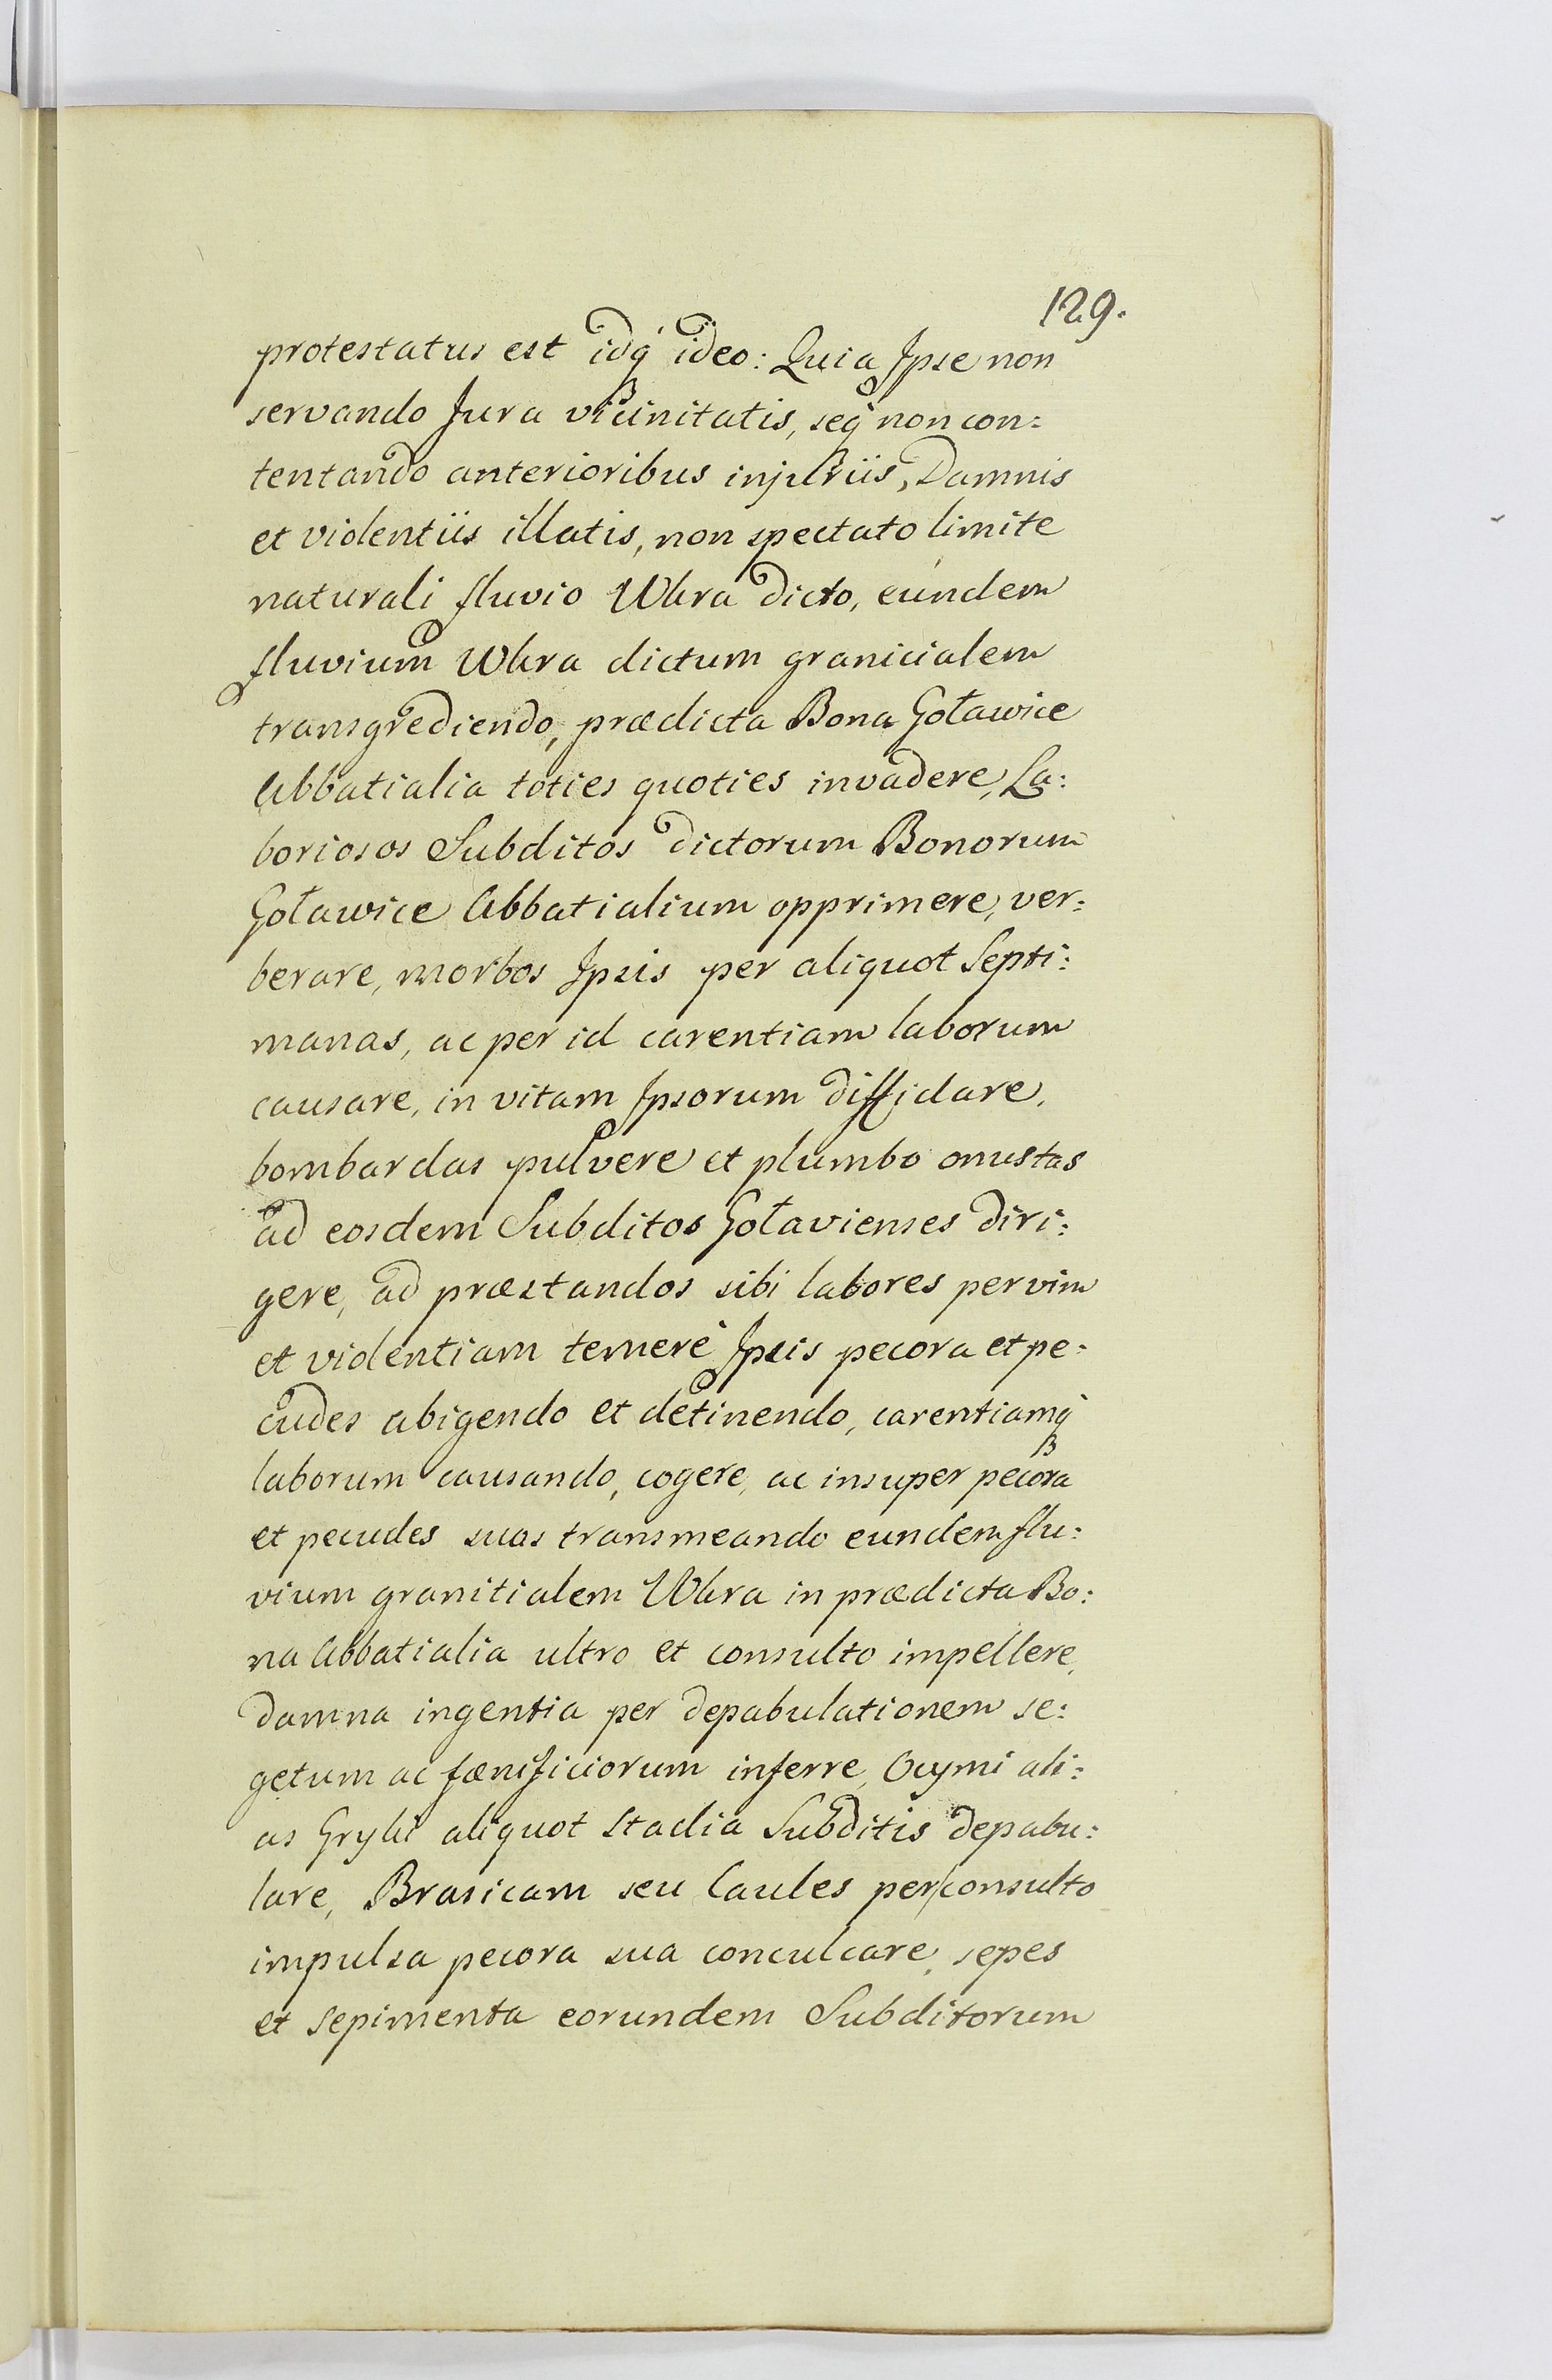 129.
protestatus est idq̃ ideo: Quia Ipse non
servando Jura vicinitatis, seq̃ non con:
tentando anterioribus injuriis, Damnis
et violentiis illatis, non spectato limite
naturali fluvio Wkra dicto, eundem
fluvium Wkra dictum granicialem
transgrediendo, prædicta Bona Goławice
Abbatialia toties quoties invadere, La:
boriosos Subditos dictorum Bonorum
Goławice Abbatialium opprimere, ver:
berare, morbos Ipsis per aliquot Septi:
manas, ac per id carentiam laborum
causare, in vitam Ipsorum diffidare,
bombardas pulvere et plumbo onustas
ad eosdem Subditos Goławienses diri:
gere, ad præstandos sibi labores per vim
et violentiam temerè Ipsis pecora et pe:
cudes abigendo et detinendo, carentiamq̃
laborum causando, cogere, ac insuper pecora
et pecudes suas transmeando eundem flu:
vium granitialem Wkra in prædicta Bo:
na Abbatialia ultro et consulto impellere,
damna ingentia per depabulationem se:
getum ac fænificiorum inferre, Ocymi ali:
as Gryki aliquot Stadia Subditis depabu:
lare, Brasicam seu Caules per consulto
impulsa pecora sua conculcare, sepes
et sepimenta eorundem Subditorum